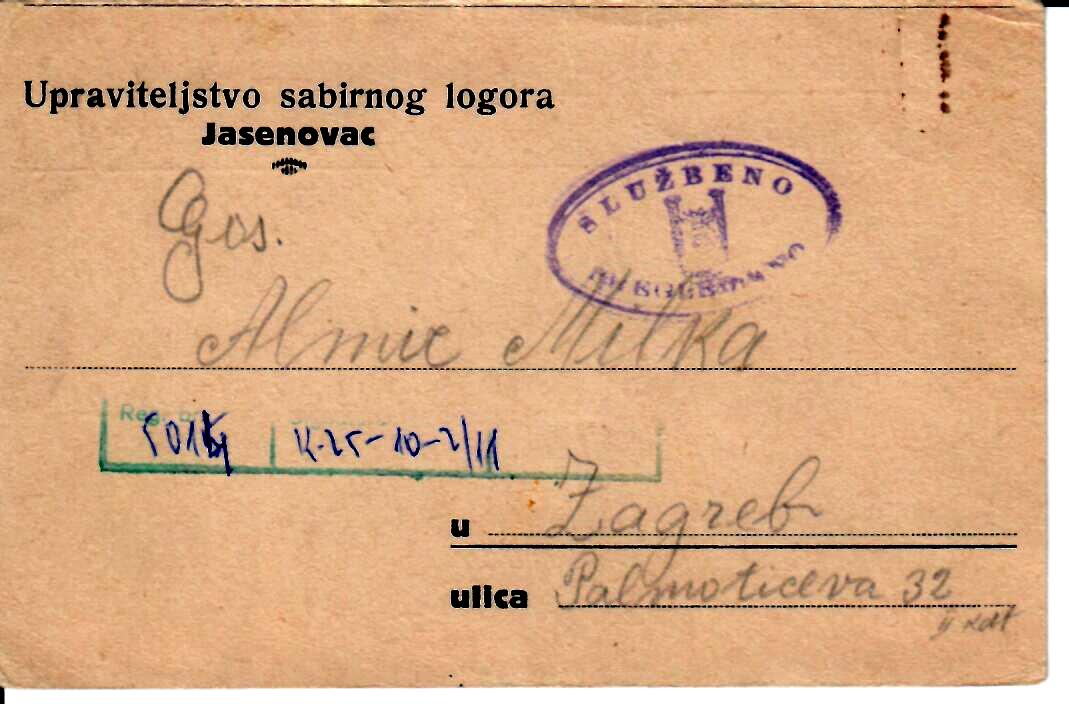 Upraviteljstvo sabirnog logora
Jasenovac
SLUŽBENO
Gos.
Almic Milka
Reg. br.
K-25-10-2/11
u Zagreb
ulica Palmoticeva 32